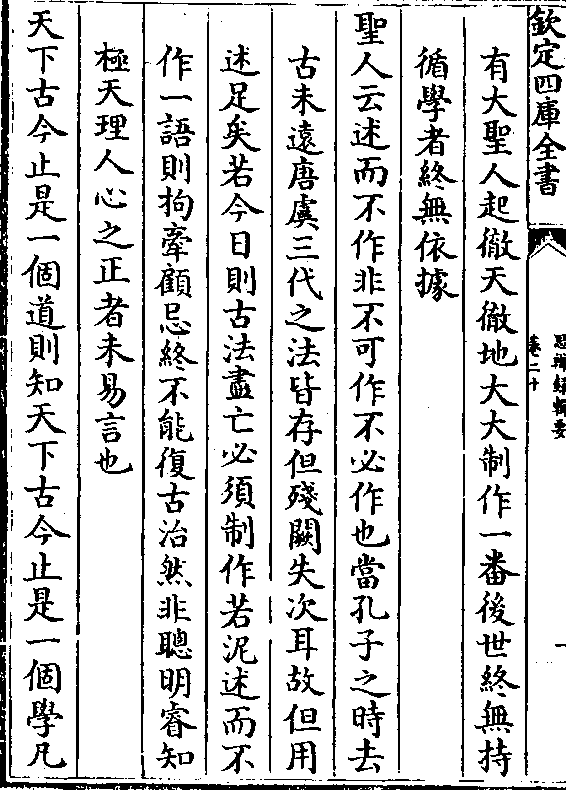 欽定四庫全書
思辨録輯要
卷二十
一
有大聖人起徹天徹地大大制作一番後世終無持
循學者終無依據
聖人云述而不作非不可作不必作也當孔子之時去
古未遠唐虞三代之法皆存但殘闕失次耳故但用
述足矣若今日則古法盡亡必須制作若泥述而不
作一語則拘牽顧忌終不能復古治然非聰明睿知
極天理人心之正者未易言也
天下古今止是一個道則知天下古今止是一個學凡